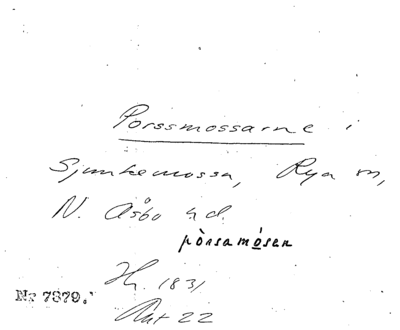 Porssmossarne i
Sjunkemossa, Rya sn,
N. Åsbo hd.
pòrsamósen
Hr. 1831
Akt 22
Nr 7879.